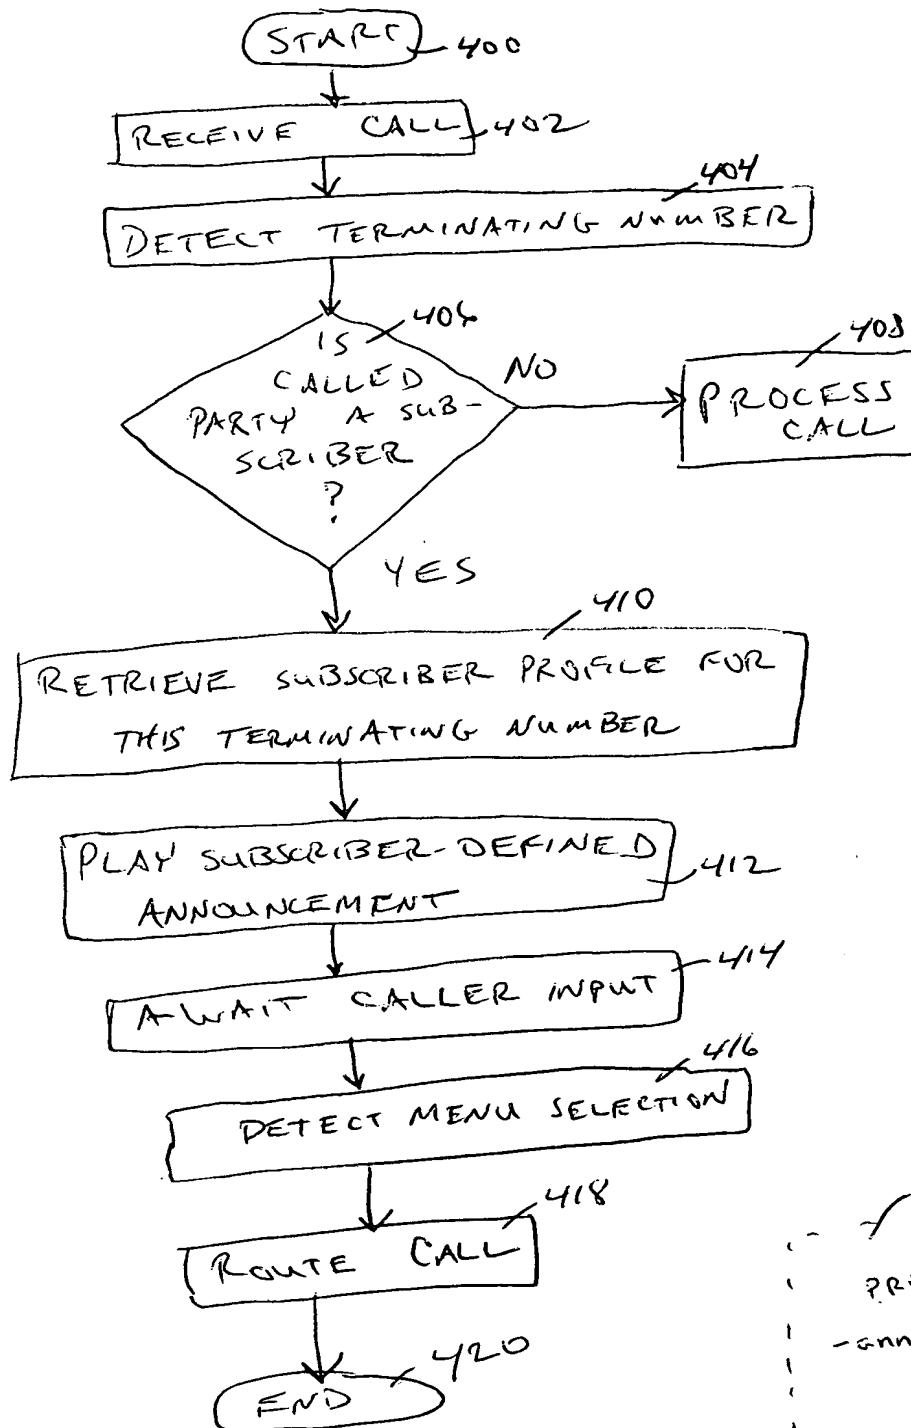 START
400
RECEIVE CALL
402
404
DETECT TERMINATING NUMBER
406
IS
CALLED
PARTY A SUB-
SCRIBER
?
NO
408
PROCESS
CALL
YES
410
RETRIEVE SUBSCRIBER PROFILE FOR
THIS TERMINATING NUMBER
PLAY SUBSCRIBER-DEFINED
ANNOUNCEMENT
412
AWAIT CALLER INPUT
414
416
DETECT MENU SELECTION
418
ROUTE CALL
420
END